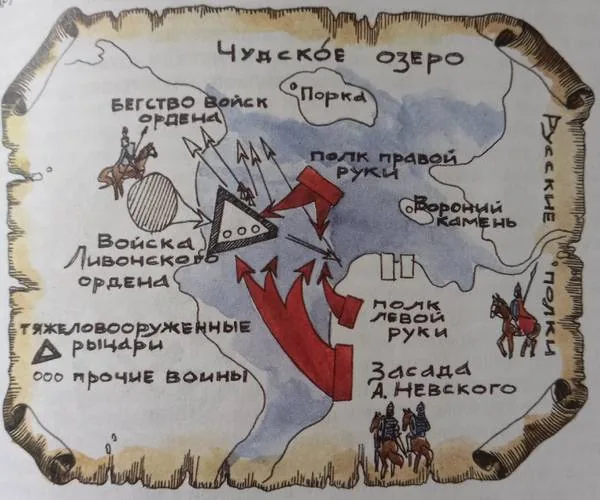 Чудское озеро
Порка
Бегство войск
ордена
полк правой
руки
Русские полки
Вороний
камень
Войска
Ливонского
ордена
полк
левой
руки
тяжеловооруженные
рыцари
прочие воины
Засада
А. Невского